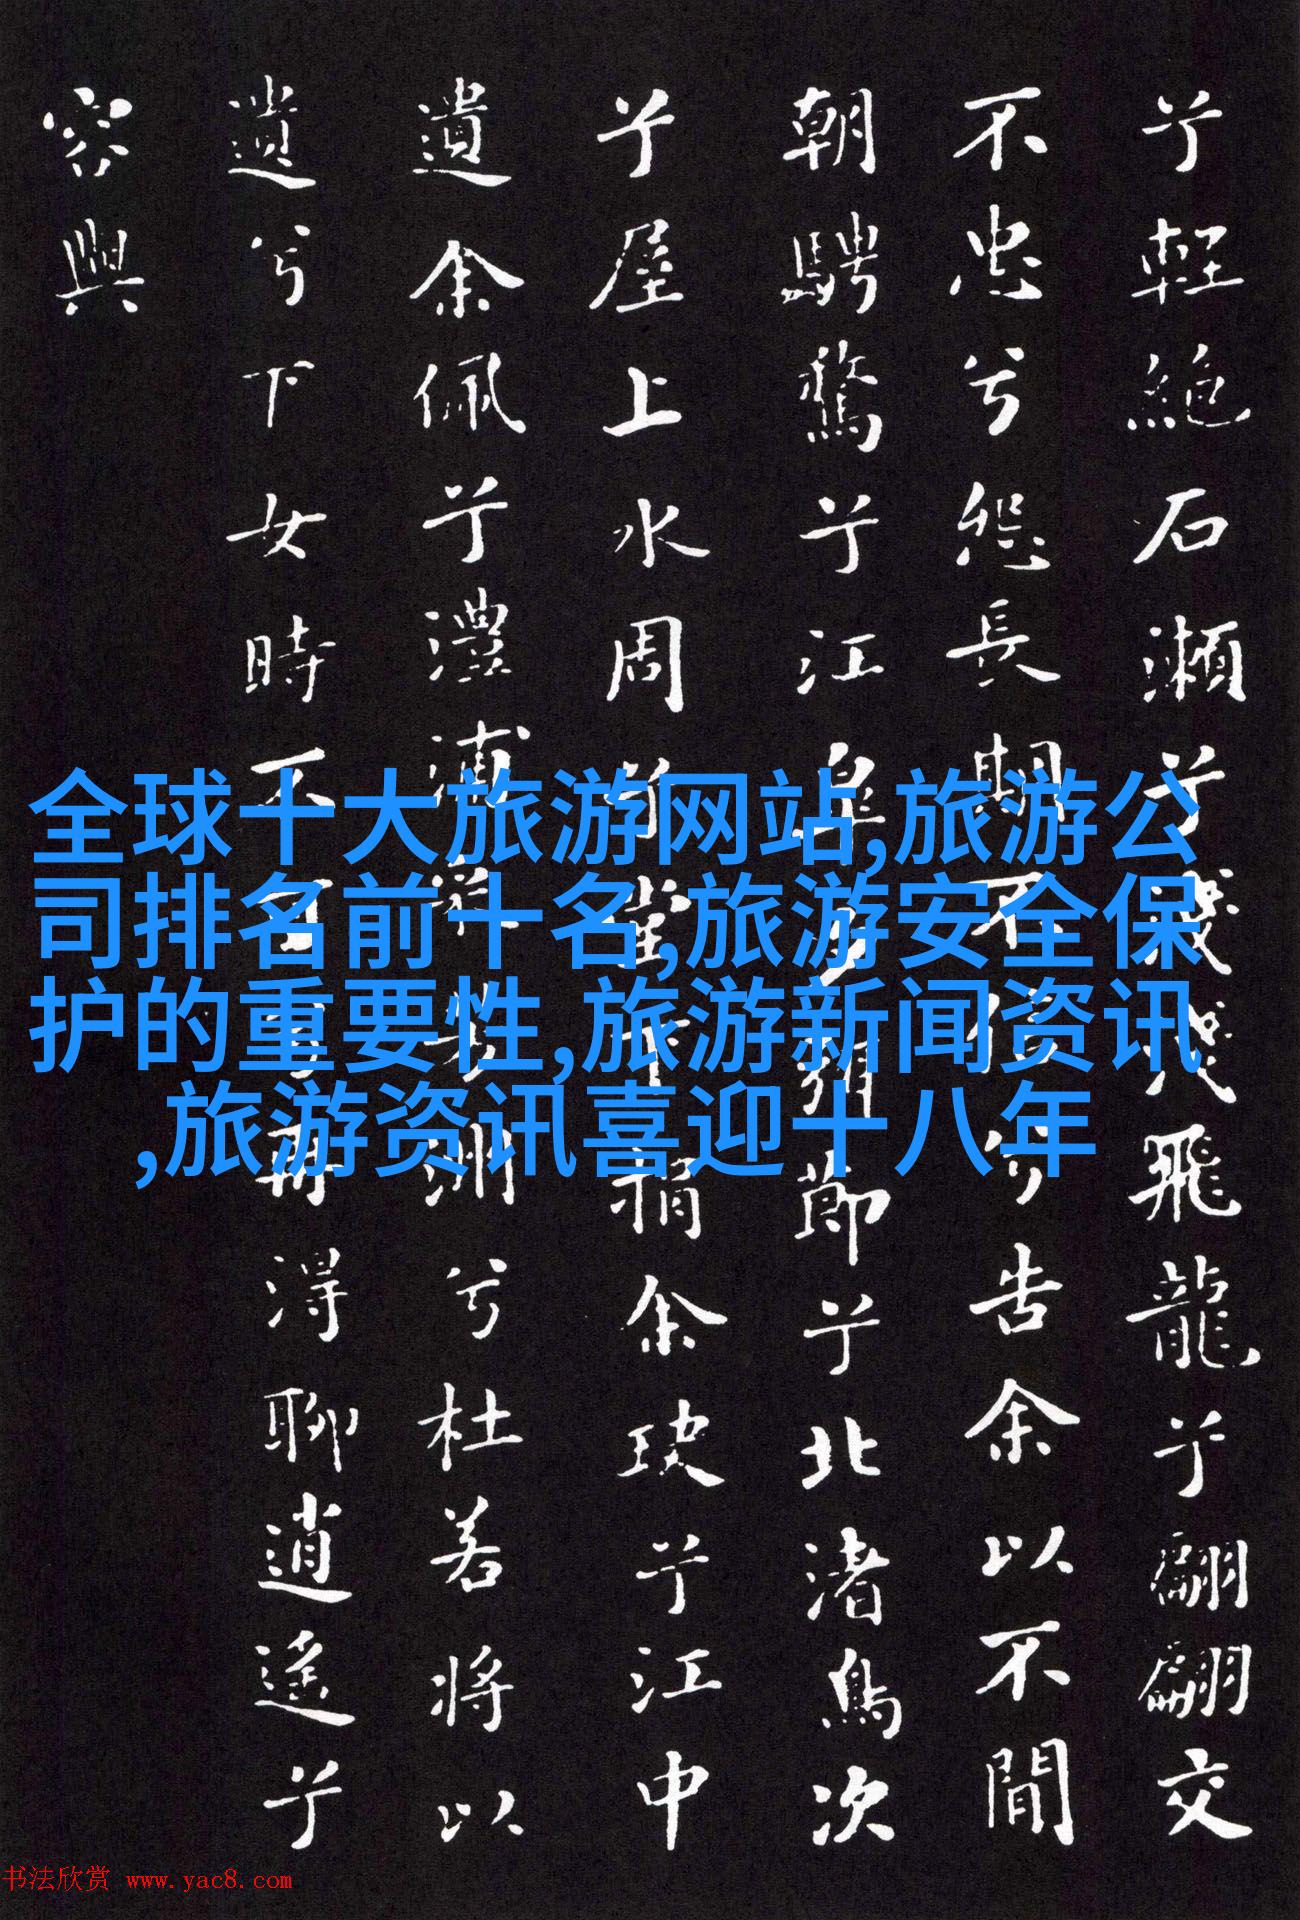 兮輕絶石瀬兮淺淺飛龍兮翩翩交
不忠兮怨長期不信兮告余以不間
朝騁騖兮江皐夕弭節兮北渚鳥次
兮屋上水周兮堂下捐余玦兮江中
遺余佩兮澧浦采芳洲兮杜若將以
遺兮下女時不可兮再得聊逍遥兮
容與
全球十大旅游网站,旅游公
司排名前十名,旅游安全保
护的重要性,旅游新闻资讯
,旅游资讯喜迎十八年
书法欣赏 www.yac8.com